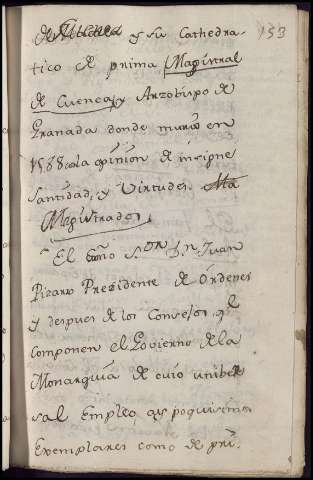 de Alcala y su Cathedra- 153
tico de prima Magistral
de Cuenca, y Arzobispo de
Granada donde murió en
1588 con la opinion de insigne
Santidad, y Virtudes. Ma
Magistrados.
El Exmo S.or D.n Juan
Pizarro Presidente de Órdenes
y despues de los Consejos q.e
componen el Govierno de la
Monarquia de cuio uniber
sal Empleo, ay poquisimos
Exemplares como de pri-